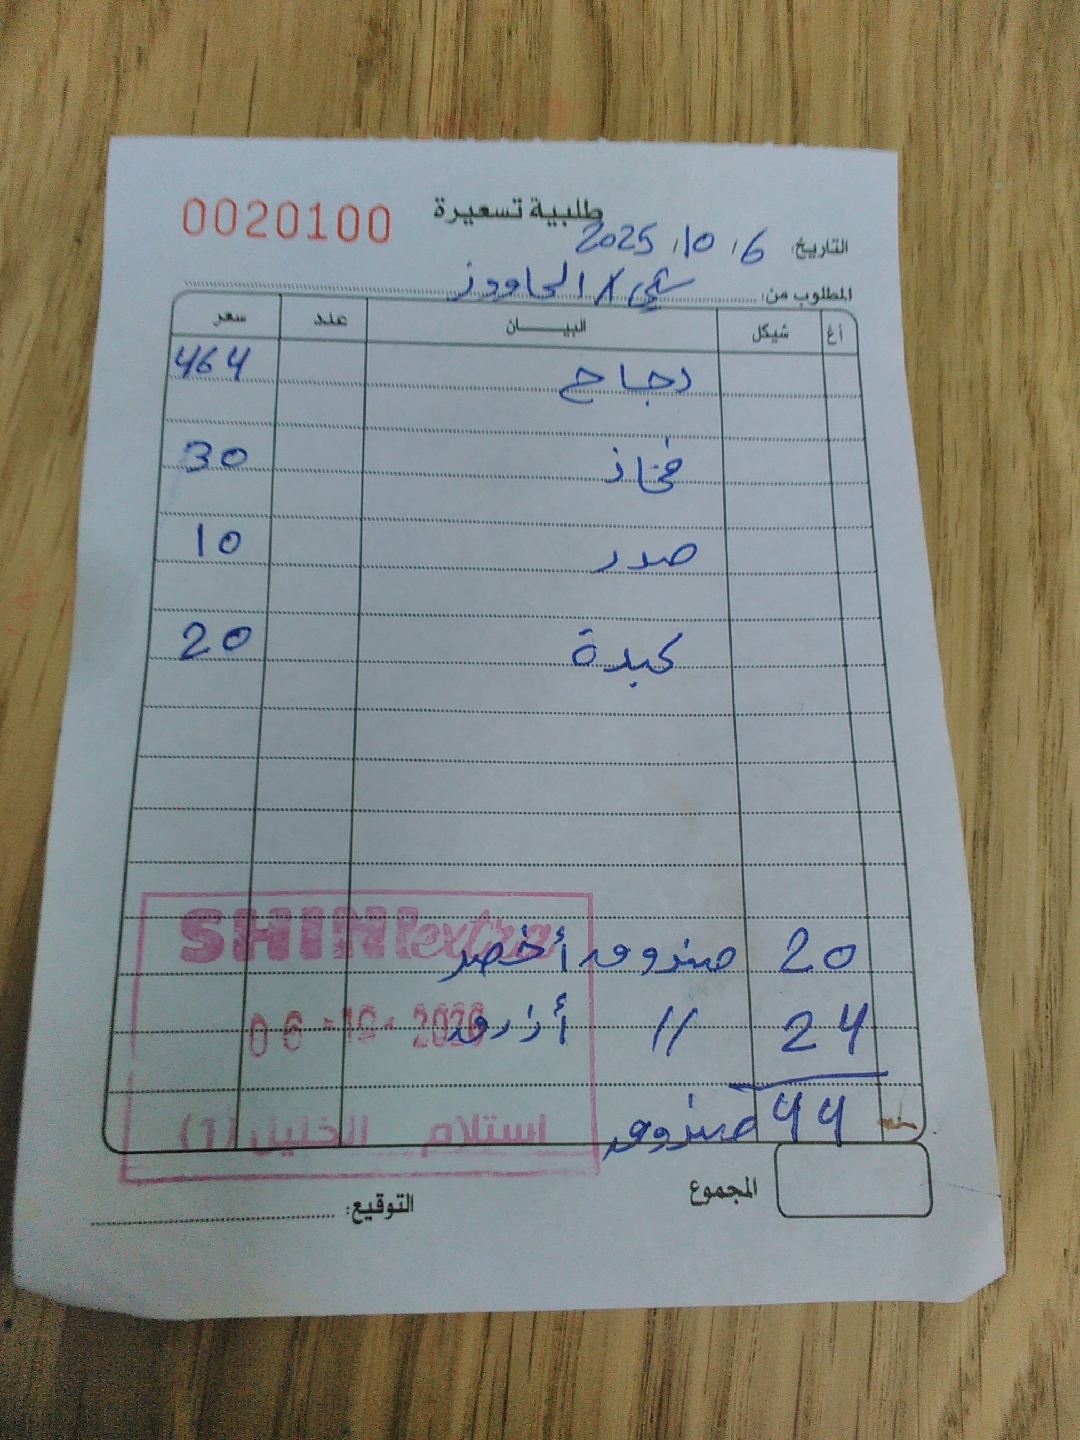 طلبية تسعيرة
0020100
التاريخ: 6 / 10 / 2025
المطلوب من: شيني / الحاووز
أغ شيكل البيـــان عدد سعر
دجاج 464
فخاذ 30
صدر 10
كبدة 20
SHINI extra
20 صندوق أخضر
24 // أزرق
06 -10-
44 صندوق
استلام الخليل (1)
المجموع
التوقيع: